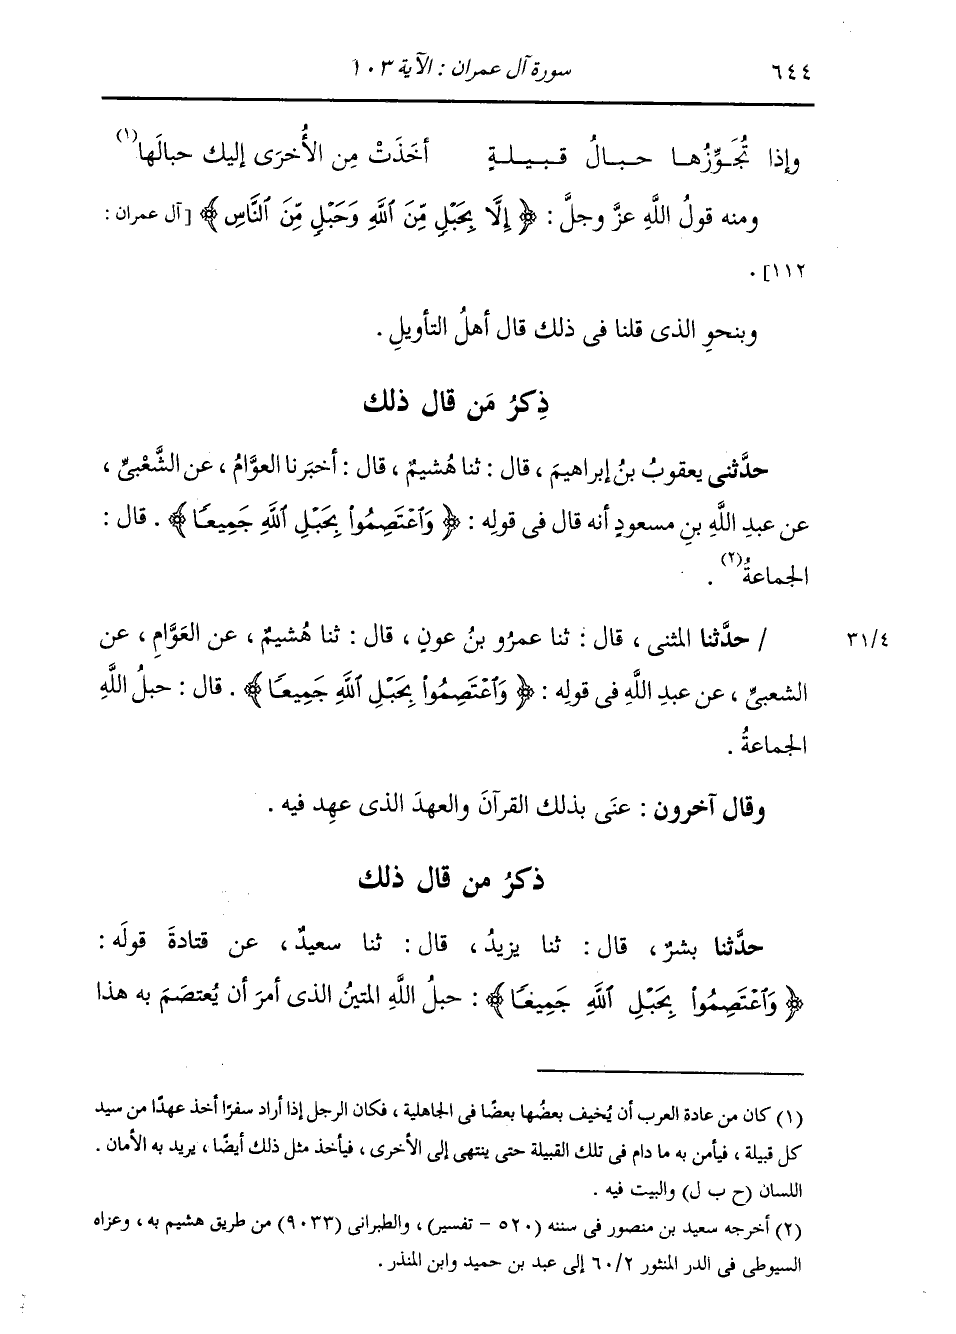 ٦٤٤ سورة آل عمران : الآية ١٠٣
وإذا تُجَوِّزُها حبالُ قبيلةٍ أخَذَتْ مِن الأُخرَى إليك حبالَها(١)
ومنه قولُ اللَّهِ عزَّ وجلَّ : ﴿ إِلَّا بِحَبْلٍ مِّنَ ٱللَّهِ وَحَبْلٍ مِّنَ ٱلنَّاسِ ﴾ [آل عمران :
١١٢] .
وبنحوِ الذى قلنا فى ذلك قال أهلُ التأويلِ .
ذِكرُ مَن قال ذلك
حدَّثنى يعقوبُ بنُ إبراهيمَ ، قال : ثنا هُشيمٌ ، قال : أخبَرنا العوَّامُ ، عن الشَّعْبىِّ ،
عن عبدِ اللَّهِ بنِ مسعودٍ أنه قال فى قولِه : ﴿ وَٱعْتَصِمُوا۟ بِحَبْلِ ٱللَّهِ جَمِيعًا ﴾ . قال :
الجماعةُ(٢) .
٣١/٤ / حدَّثنا المثنى ، قال : ثنا عمرُو بنُ عونٍ ، قال : ثنا هُشيمٌ ، عن العَوَّامِ ، عن
الشعبىِّ ، عن عبدِ اللَّهِ فى قولِه : ﴿ وَٱعْتَصِمُوا۟ بِحَبْلِ ٱللَّهِ جَمِيعًا ﴾ . قال : حبلُ اللَّهِ
الجماعةُ .
وقال آخرون : عنَى بذلك القرآنَ والعهدَ الذى عهِد فيه .
ذكرُ من قال ذلك
حدَّثنا بشرٌ ، قال : ثنا يزيدُ ، قال : ثنا سعيدٌ ، عن قتادةَ قولَه :
﴿ وَٱعْتَصِمُوا۟ بِحَبْلِ ٱللَّهِ جَمِيعًا ﴾ : حبلُ اللَّهِ المتينُ الذى أمرَ أن يُعتصَمَ به هذا
(١) كان من عادة العرب أن يُخيف بعضُها بعضًا فى الجاهلية ، فكان الرجل إذا أراد سفرًا أخذ عهدًا من سيد
كل قبيلة ، فيأمن به ما دام فى تلك القبيلة حتى ينتهى إلى الأخرى ، فيأخذ مثل ذلك أيضًا ، يريد به الأمان .
اللسان (ح ب ل) والبيت فيه .
(٢) أخرجه سعيد بن منصور فى سننه (٥٢٠ - تفسير) ، والطبرانى (٩٠٣٣) من طريق هشيم به ، وعزاه
السيوطى فى الدر المنثور ٦٠/٢ إلى عبد بن حميد وابن المنذر .